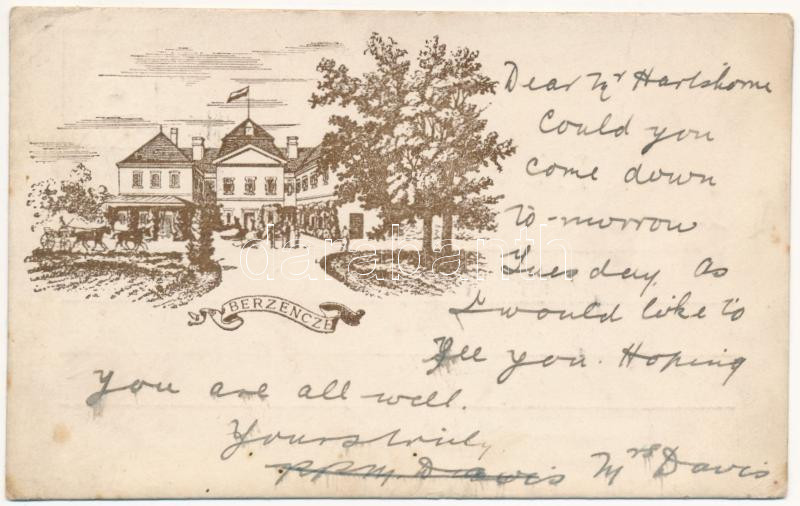 BERZENCZE
Dear Mr Hartshorne
Could you
come down
to-morrow
Tuesday, as
I would like to
see you. Hoping
you are all well.
Yours truly
Mrs Davis
darabanth